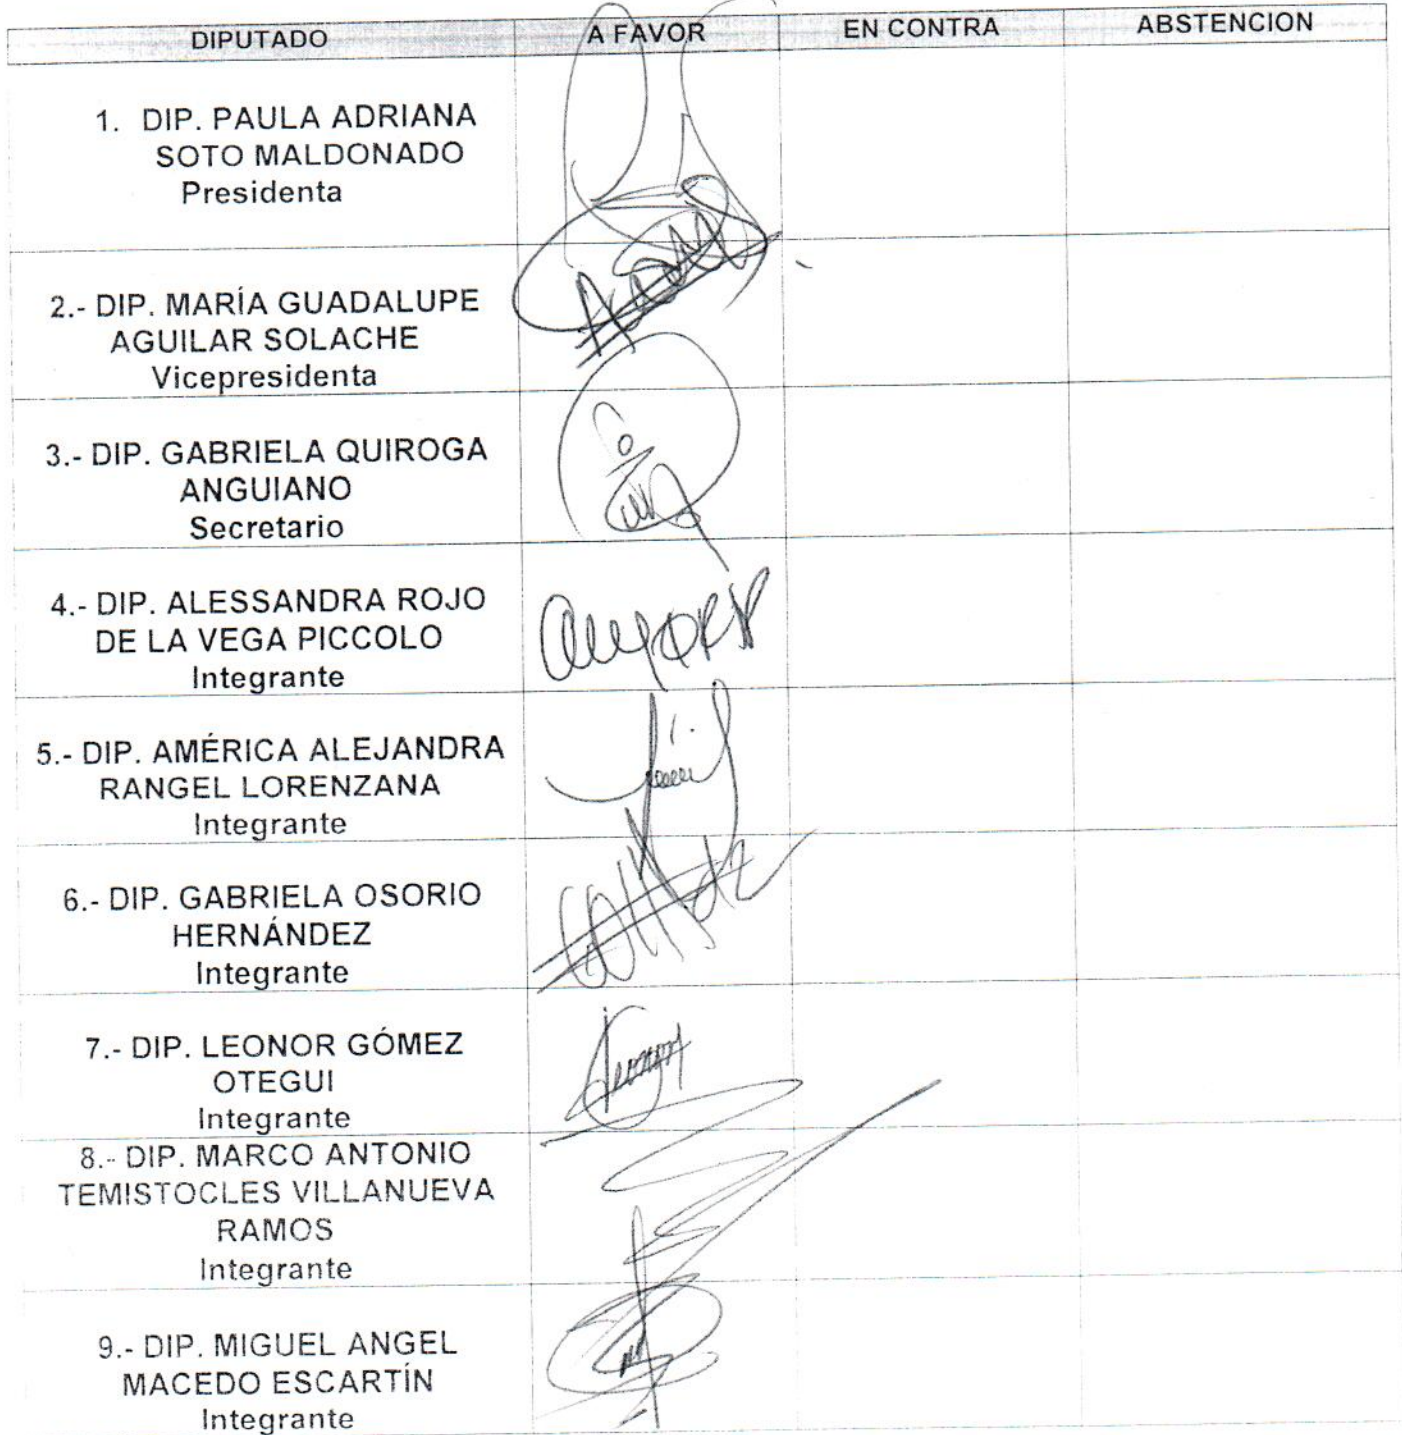 DIPUTADO A FAVOR EN CONTRA ABSTENCION
1. DIP. PAULA ADRIANA
SOTO MALDONADO
Presidenta
2.- DIP. MARÍA GUADALUPE
AGUILAR SOLACHE
Vicepresidenta
3.- DIP. GABRIELA QUIROGA
ANGUIANO
Secretario
4.- DIP. ALESSANDRA ROJO
DE LA VEGA PICCOLO
Integrante
5.- DIP. AMÉRICA ALEJANDRA
RANGEL LORENZANA
Integrante
6.- DIP. GABRIELA OSORIO
HERNÁNDEZ
Integrante
7.- DIP. LEONOR GÓMEZ
OTEGUI
Integrante
8.- DIP. MARCO ANTONIO
TEMISTOCLES VILLANUEVA
RAMOS
Integrante
9.- DIP. MIGUEL ANGEL
MACEDO ESCARTÍN
Integrante